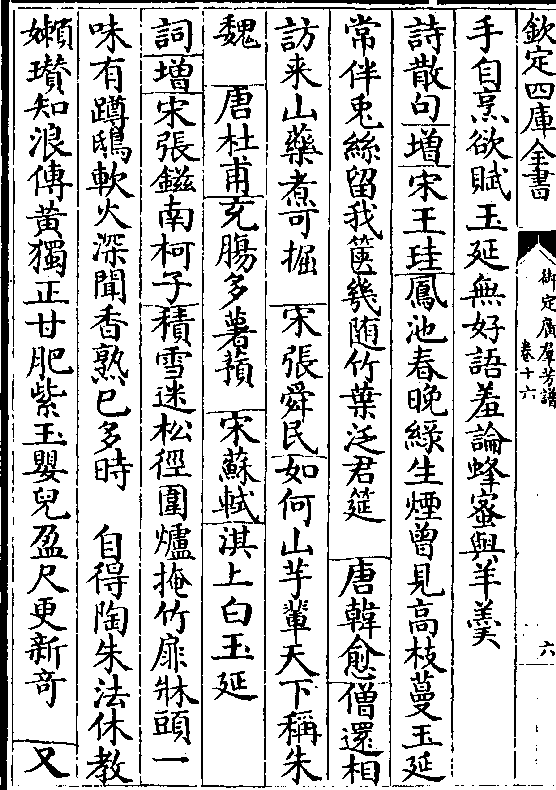 欽定四庫全書
御定廣羣芳譜
卷十六
六
手自烹欲賦玉延無好語羞論蜂蜜與羊羹
詩散句增宋王珪鳳池春晚綠生煙曾見高枝蔓玉延
常伴兎絲留我篋幾随竹葉泛君筵 唐韓愈僧還相
訪来山藥煮可掘 宋張舜民如何山芋輩天下稱朱
魏 唐杜甫充腸多薯蕷 宋蘇軾淇上白玉延
詞增宋張鎡南柯子積雪迷松徑圍爐掩竹扉牀頭一
味有蹲鴟軟火深聞香熟已多時 自得陶朱法休教
嬾瓚知浪傳黃獨正甘肥紫玉嬰兒盈尺更新竒 又